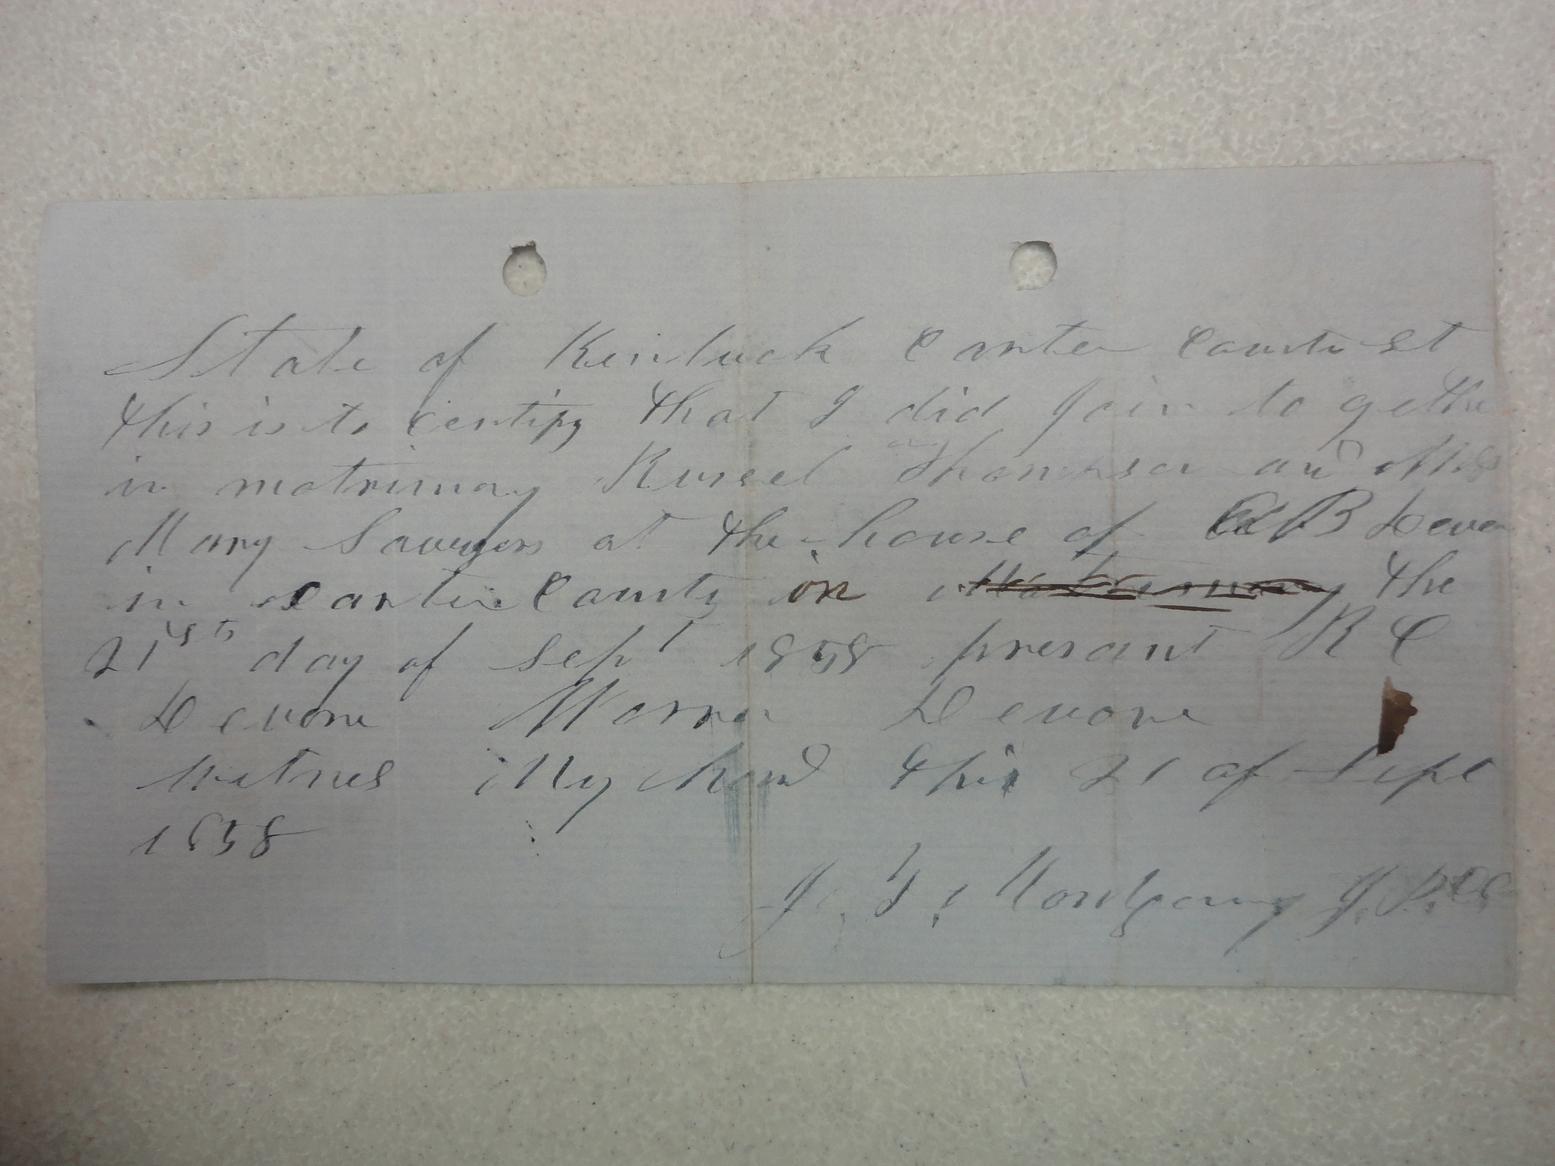 State of Kentuck Carter County Sct
this is to certify that I did Join to gether
in matrimony Russel Thompson and Miss
Mary Sawyers at the house of B Devore
in Carter County on the
21st day of Sept 1858 presant R C
Devore Warner Devore
Witnes My hand this 21 of Sept
1858
J. Montgomery J.P.CC